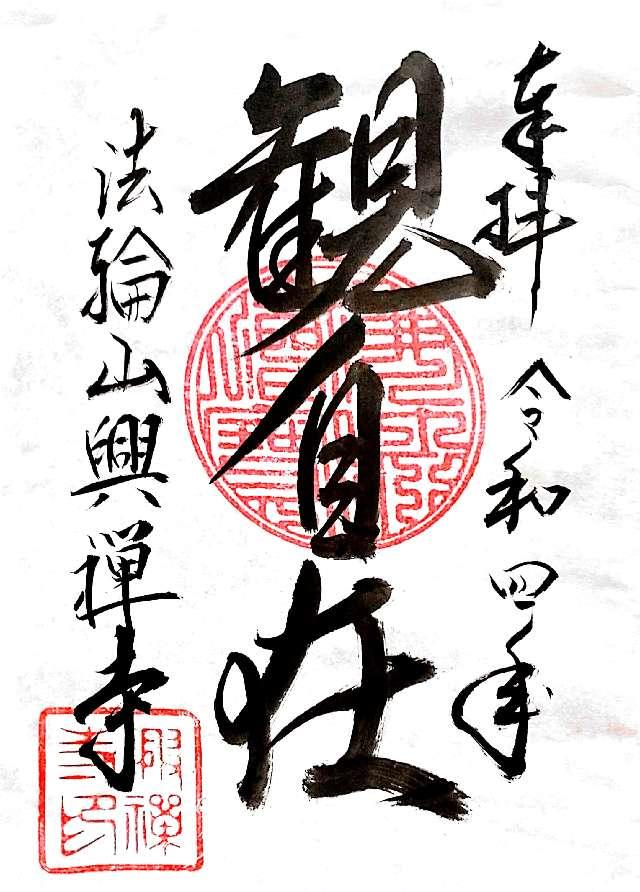 奉拝 令和四年
観自在
法輪山興禅寺
興禅寺印